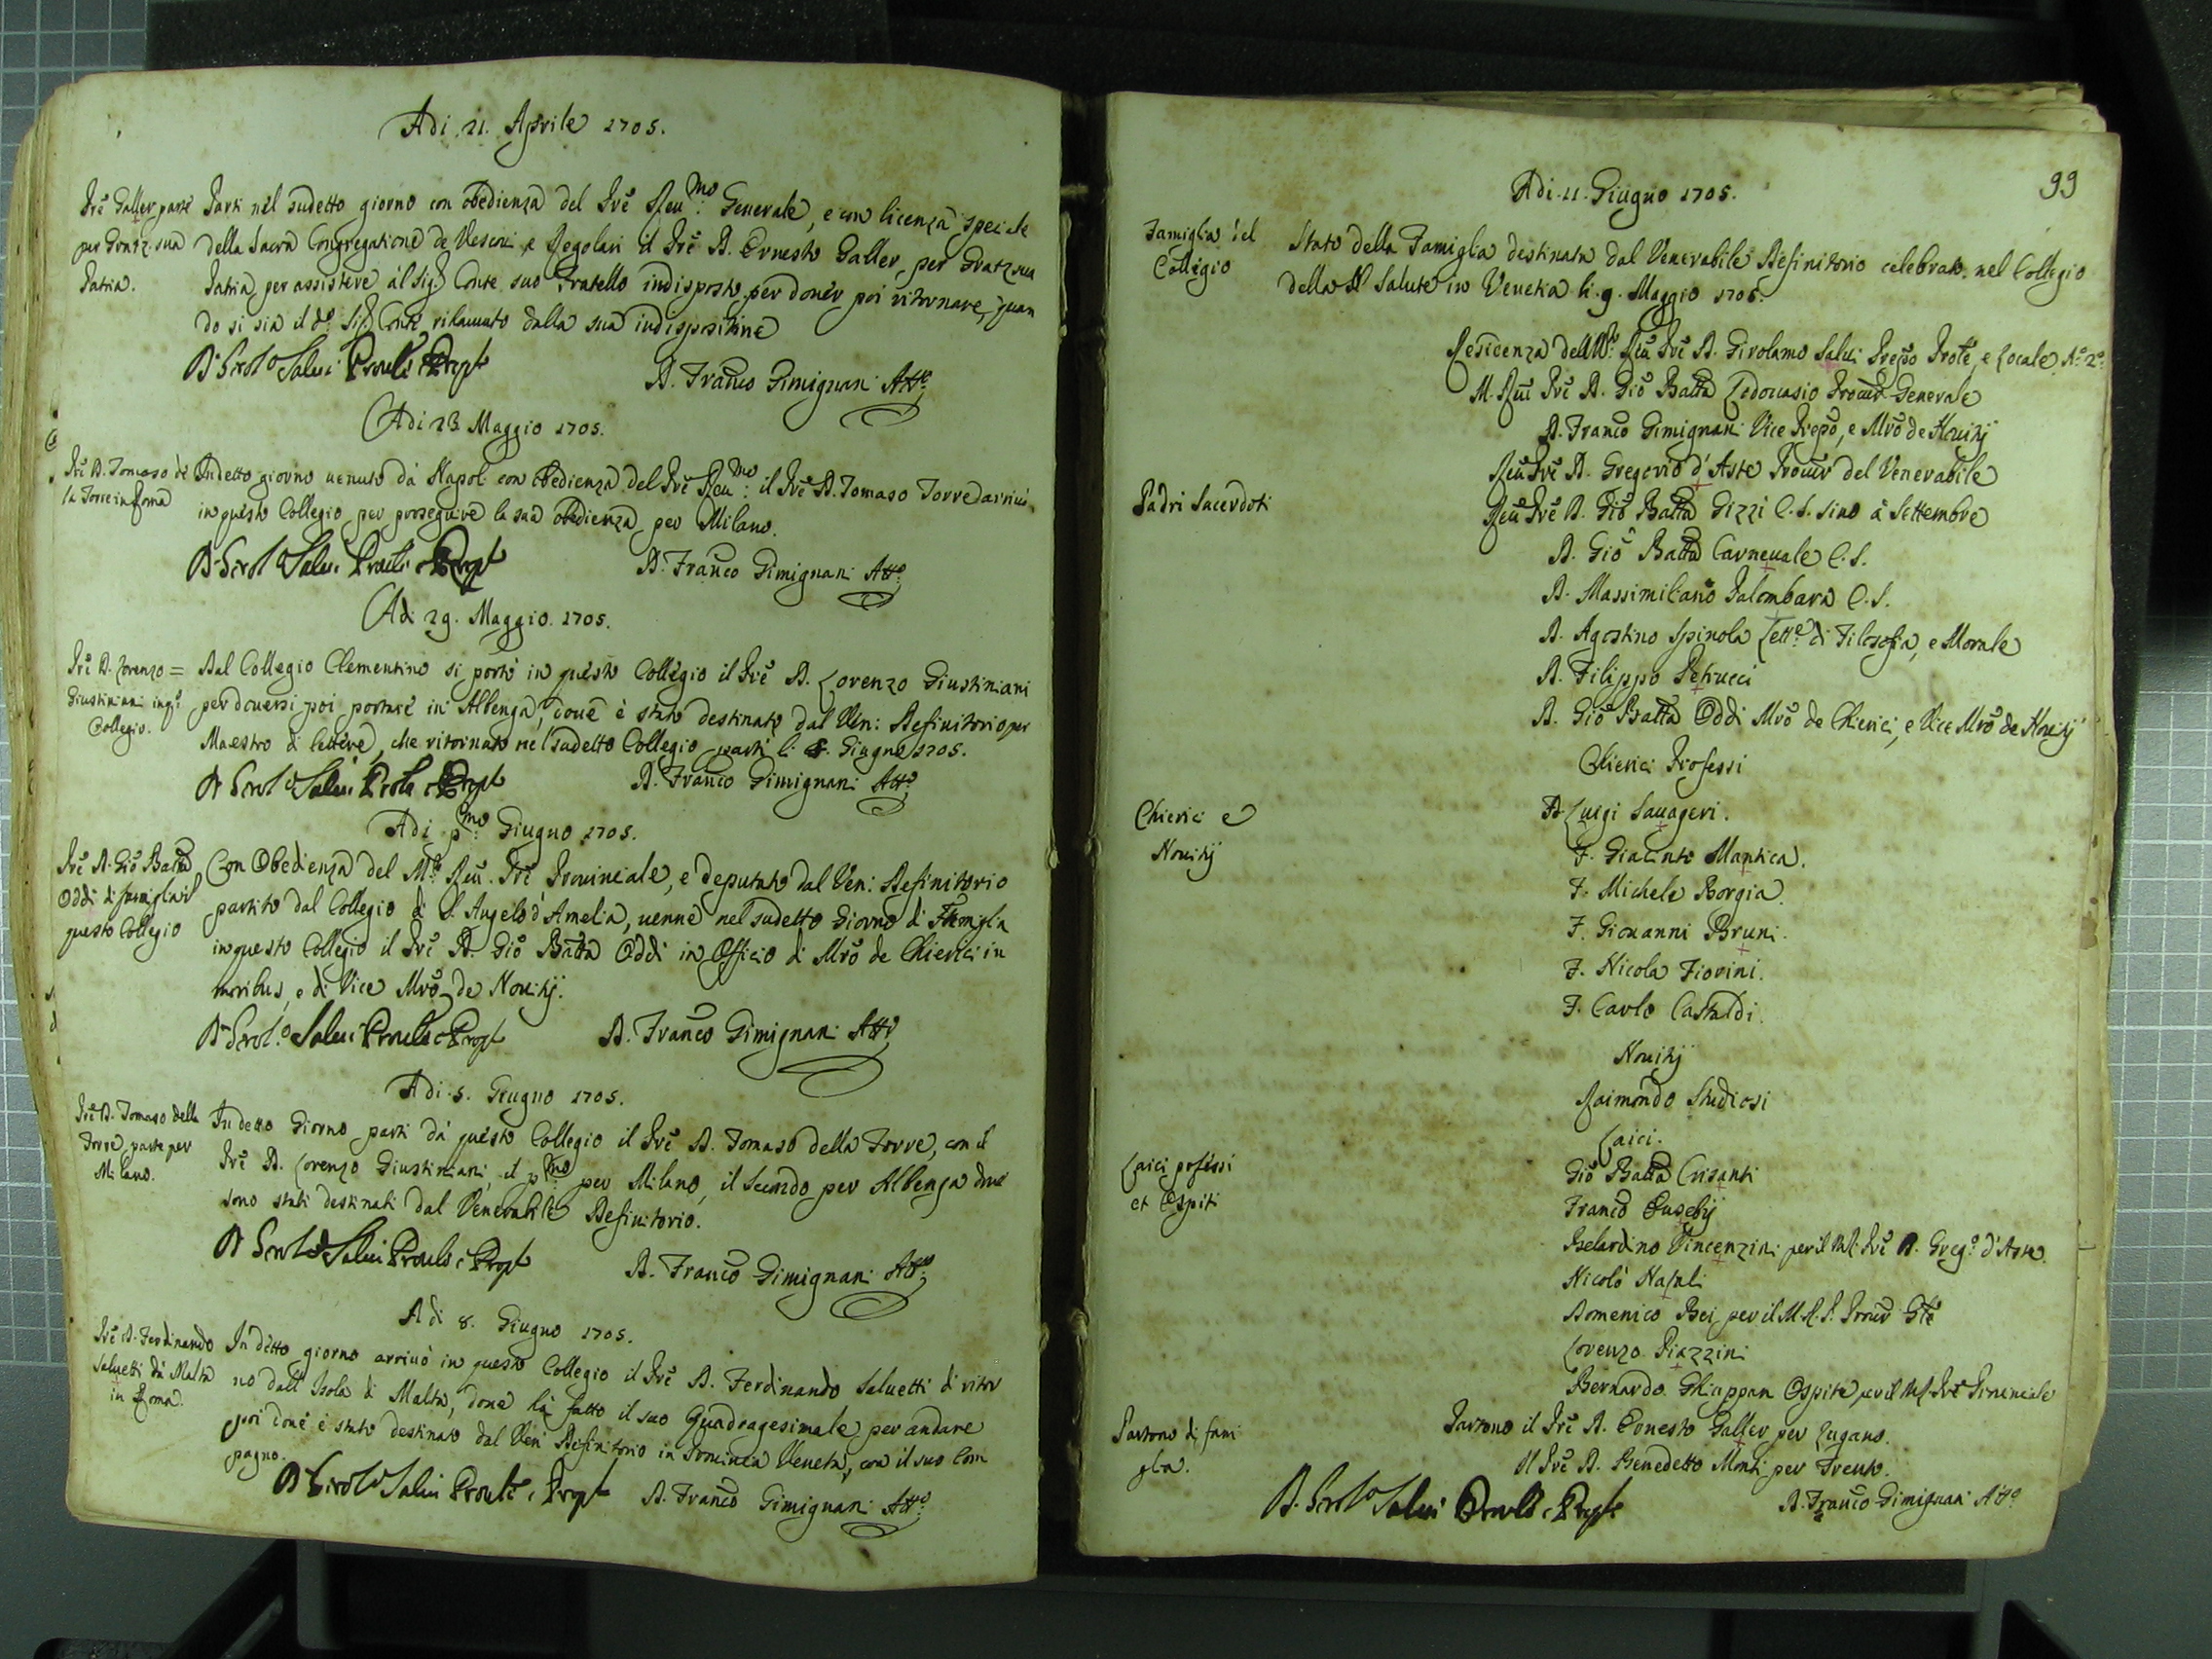 Adi 21. Aprile 1705.
Prē Galler parte
per Gratz sua
Patria.
Parti nel sudetto giorno con obedienza del Prē Reu.mo Generale, e con licenza speciale
della Sacra Congregatione de Vescoui e Regolari il Prē D. Ernesto Galler, per Gratz sua
Patria, per assistere al Sig.r Conte suo Fratello indisposto, per douer poi ritornare, quan
do si sia il do. Sig.r Conte rihauuto dalla sua indispositine
D. Girolo Salui Proule e Prepto
D. Franco Gimignani Atto.
Adi 23 Maggio 1705.
Prē D. Tomaso de
la Torre in Roma
In detto giorno uenuto da Napoli con obedienza del Prē Reu.mo il Prē D. Tomaso Torre arriuò
in questo Collegio per proseguire la sua obedienza per Milano.
D. Girolo Salui Proule e Prepto
D. Franco Gimignani Atto.
Adi 29. Maggio. 1705.
Prē D. Lorenzo =
Giustiniani in q.o
Collegio.
Dal Collegio Clementino si portò in questo Collegio il Prē D. Lorenzo Giustiniani
per douersi poi portare in Albenga, doue è stato destinato dal Ven: Definitorio per
Maestro di lettere, che ritornato nel sudetto Collegio parti li 5. Giugno 1705.
D. Girolo Salui Proule e Prepto
D. Franco Gimignani Atto.
Adi pmo Giugno 1705.
Prē D. Gio Batta
Oddi di famiglia in
questo Collegio
Con Obedienza del M.o Reu. Prē Prouinciale, e deputato dal Ven: Definitorio
partito dal Collegio di S. Angelo d'Amelia, uenne nel sudetto Giorno di Famiglia
in questo Collegio il Prē D. Gio Batta Oddi in Officio di Mrō de Chierici in
moribus, e di Vice Mrō de Nouitij.
D. Girolo Salui Proule e Prepto
D. Franco Gimignani Atto
Adi 5. Giugno 1705.
Prē D. Tomaso della
Torre, parte per
Milano.
In detto Giorno parti da questo Collegio il Prē D. Tomaso della Torre, con il
Prē D. Lorenzo Giustiniani, il pmo per Milano, il secondo per Albenga doue
sono stati destinati dal Venerabile Definitorio.
D. Girolo Salui Proule e Prepto
D. Franco Gimignani Atto.
Adi 8. Giugno 1705.
Prē D. Ferdinando
Saluetti da Malta
in Roma.
In detto giorno arriuò in questo Collegio il Prē D. Ferdinando Saluetti di ritor
no dall'Isola di Malta, doue ha fatto il suo Quadragesimale per andare
poi doue è stato destinato dal Ven Definitorio in Prouincia Veneta, con il suo Com
pagno.
D. Girolo Salui Proule e Prepto
D. Franco Gimignani Atto.
99
Adi 11. Giugno 1705.
Famiglia del
Collegio
Stato della Famiglia destinata dal Venerabile Definitorio celebrato nel Collegio
della Salute in Venetia li 9. Maggio 1705.
Residenza del M.o Reu Prē D. Girolamo Salui Prepo Prole, e Locale No. 2o.
M. Reu Prē D. Gio Batta Lodouasio Procur Generale
D. Franco Gimignani Vice Prepo, e Mrō de Nouitij
Reu Prē D. Gregorio d'Aste Procur del Venerabile
Padri Sacerdoti
Reu Prē D. Gio Batta Gizzi C.S. sino à Settembre
D. Gio Batta Carneuale C.S.
D. Massimiliano Palombara C.S.
D. Agostino Spinola Lett.e di Filosofia, e Morale
D. Filippo Petrucci
D. Gio Batta Oddi Mrō de Chierici, e Vice Mrō de Nouitij
Chierici Professi
Chierici e
Nouitij
D. Luigi Sauageri.
F. Giacinto Mantica.
F. Michele Borgia.
F. Giouanni Bruni.
F. Nicola Fiorini.
F. Carlo Castaldi.
Nouitij
Raimondo Studiosi
Laici.
Laici professi
et Ospiti
Gio Batta Crisanti
Franco Eusebij
Belardino Vincenzini per il M. Prē D. Greg.o d'Aste
Nicolò Natali
Domenico Bei per il M.R.P. Procur Gle
Lorenzo Piazzini
Bernardo Ghiappan Ospite per il M. Prē Prouinciale
Partono di fami
glia.
Partono il Prē D. Ernesto Galler per Lugano.
Il Prē D. Benedetto Monti per Trento.
D. Girolo Salui Proule e Prepto
D. Franco Gimignani Atto.